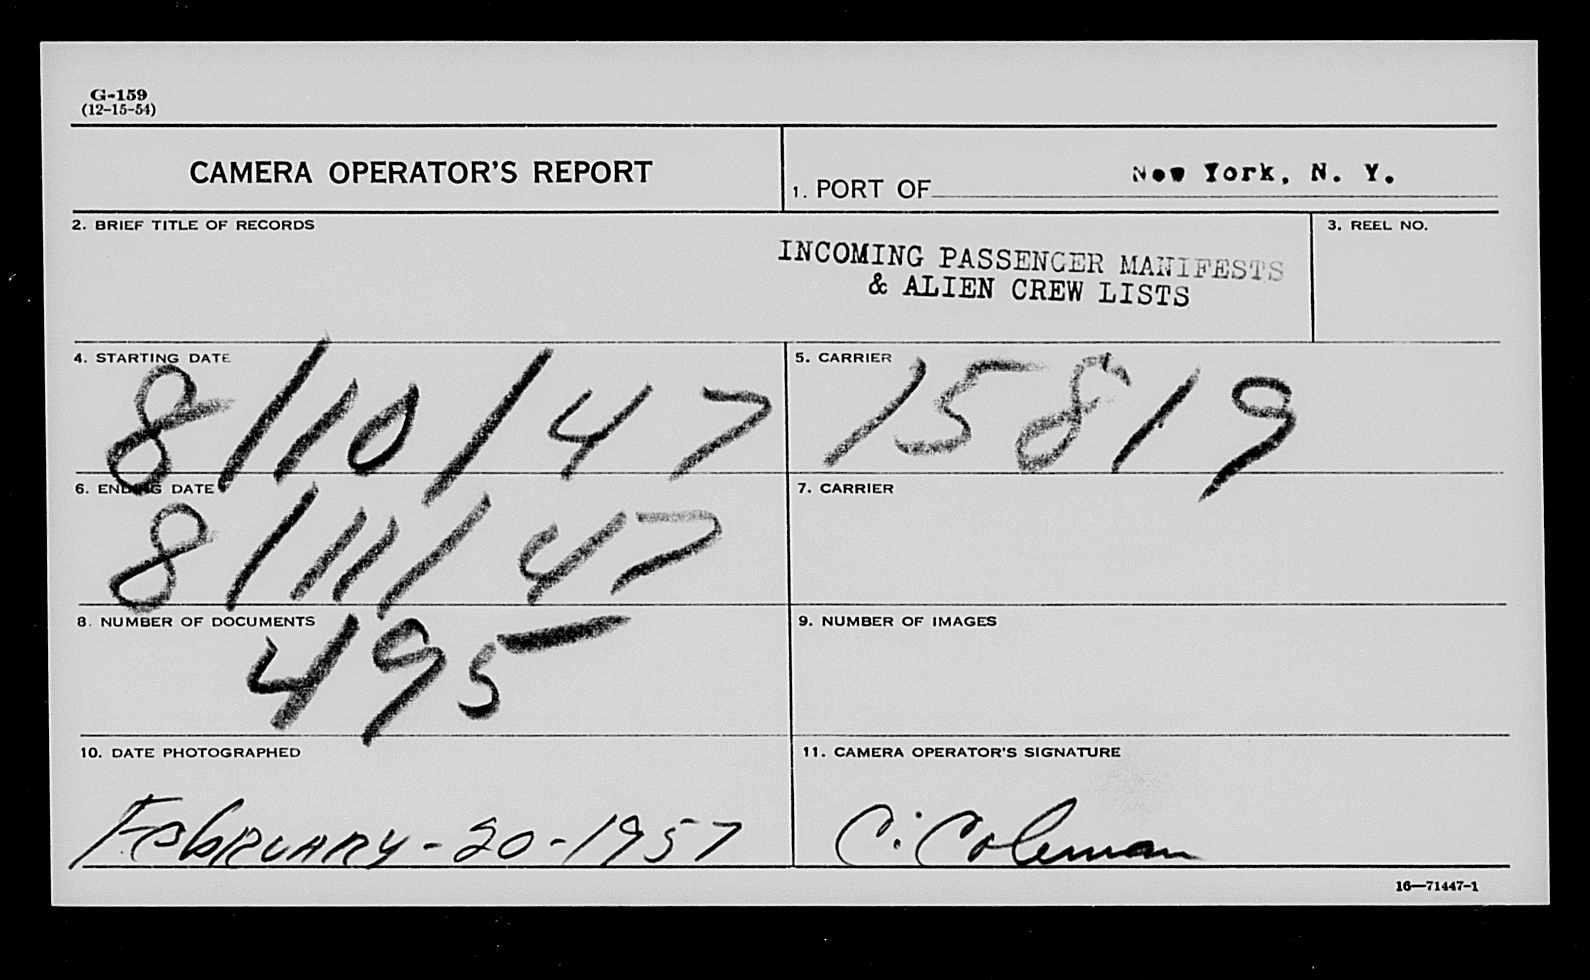 G-159
(12-15-54)
CAMERA OPERATOR'S REPORT
1. PORT OF New York, N. Y.
2. BRIEF TITLE OF RECORDS
INCOMING PASSENGER MANIFESTS
& ALIEN CREW LISTS
3. REEL NO.
4. STARTING DATE
8/10/47
5. CARRIER
15819
6. ENDING DATE
8/11/47
7. CARRIER
8. NUMBER OF DOCUMENTS
495
9. NUMBER OF IMAGES
10. DATE PHOTOGRAPHED
February-20-1957
11. CAMERA OPERATOR'S SIGNATURE
C. Coleman
16—71447-1